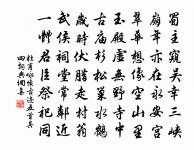 蜀主窺吳幸三峽
崩年亦在永安宮
翠華想像空山里
玉殿虛無野寺中
古廟杉松巢水鶴
歲時伏臘走村翁
武侯祠堂常鄰近
一體君臣祭祀同
杜甫咏懷古迹五首其
四